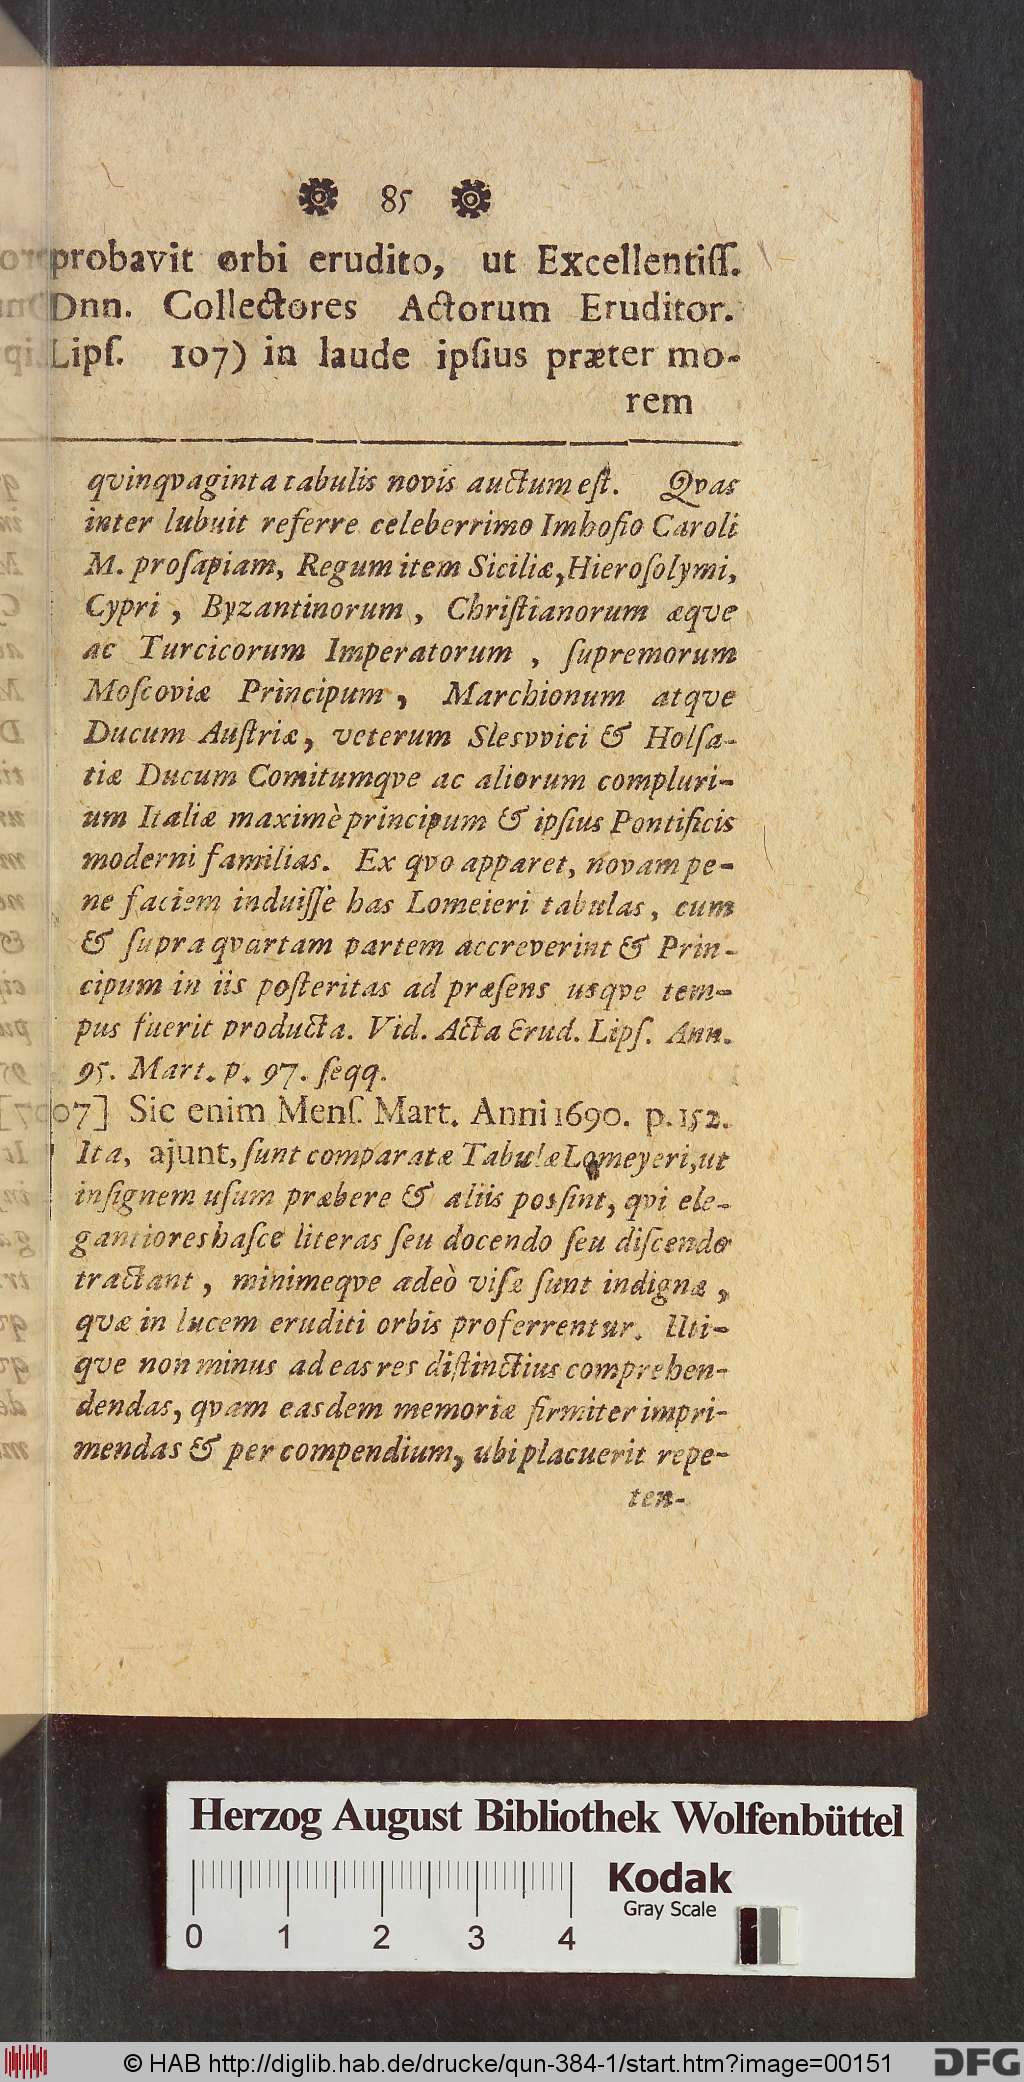 85
probavit orbi erudito, ut Excellentiſſ.
Dnn. Collectores Actorum Eruditor.
Lipſ. 107) in laude ipſius præter mo-
rem
qvinqvaginta tabulis novis auctum eſt. Qvas
inter lubuit referre celeberrimo Imhofio Caroli
M. proſapiam, Regum item Siciliæ, Hieroſolymi,
Cypri, Byzantinorum, Chriſtianorum æqve
ac Turcicorum Imperatorum, ſupremorum
Moſcoviæ Principum, Marchionum atqve
Ducum Auſtriæ, veterum Slesvvici & Holſa-
tiæ Ducum Comitumqve ac aliorum compluri-
um Italiæ maximè principum & ipſius Pontificis
moderni familias. Ex qvo apparet, novam pe-
ne faciem induiſſe has Lomeieri tabulas, cum
& ſupra qvartam partem accreverint & Prin-
cipum in iis poſteritas ad præſens usqve tem-
pus fuerit producta. Vid. Acta Erud. Lipſ. Ann.
95. Mart. p. 97. ſeqq.
107] Sic enim Menſ. Mart. Anni 1690. p. 152.
Ita, ajunt, ſunt comparatæ Tabulæ Lomeyeri, ut
inſignem uſum præbere & aliis posſint, qvi ele-
gantiores haſce literas ſeu docendo ſeu diſcendo
tractant, minimeqve adeò viſæ ſunt indignæ,
qvæ in lucem eruditi orbis proferrentur. Uti-
qve non minus ad eas res diſtinctius comprehen-
dendas, qvam easdem memoriæ firmiter impri-
mendas & per compendium, ubi placuerit repe-
ten-
Herzog August Bibliothek Wolfenbüttel
Kodak
Gray Scale
0 1 2 3 4
© HAB http://diglib.hab.de/drucke/qun-384-1/start.htm?image=00151
DFG